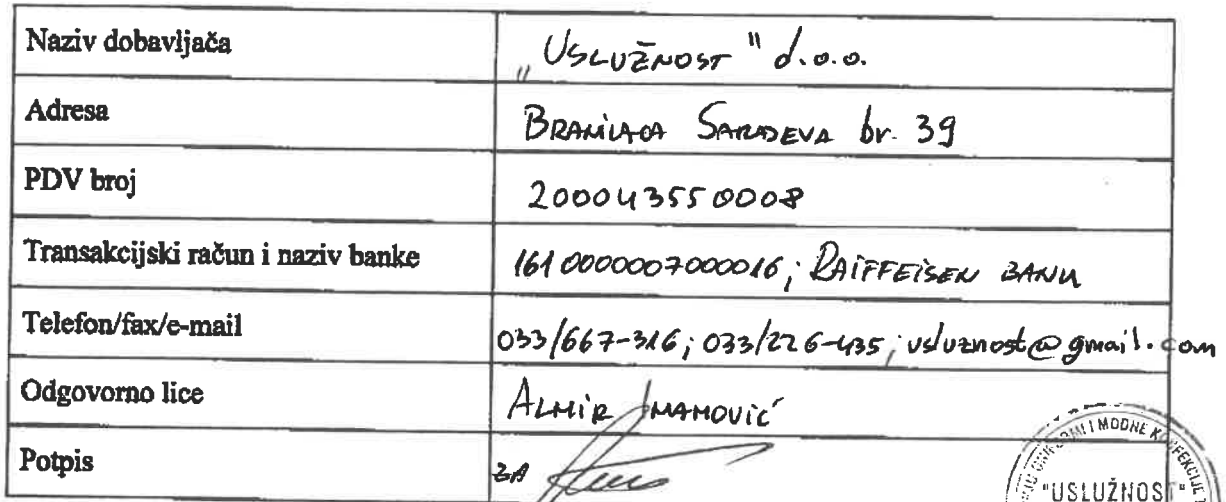 Naziv dobavljača „USLUŽNOST" d.o.o.
Adresa BRANILACA SARAJEVA br. 39
PDV broj 200043550008
Transakcijski račun i naziv banke 1610000007000016; RAIFFEISEN BANK
Telefon/fax/e-mail 033/667-316; 033/226-435; usluznost@gmail.com
Odgovorno lice ALMIR IMAMOVIĆ
Potpis ZA
I MODNE KONFEKCIJE
"USLUŽNOST"